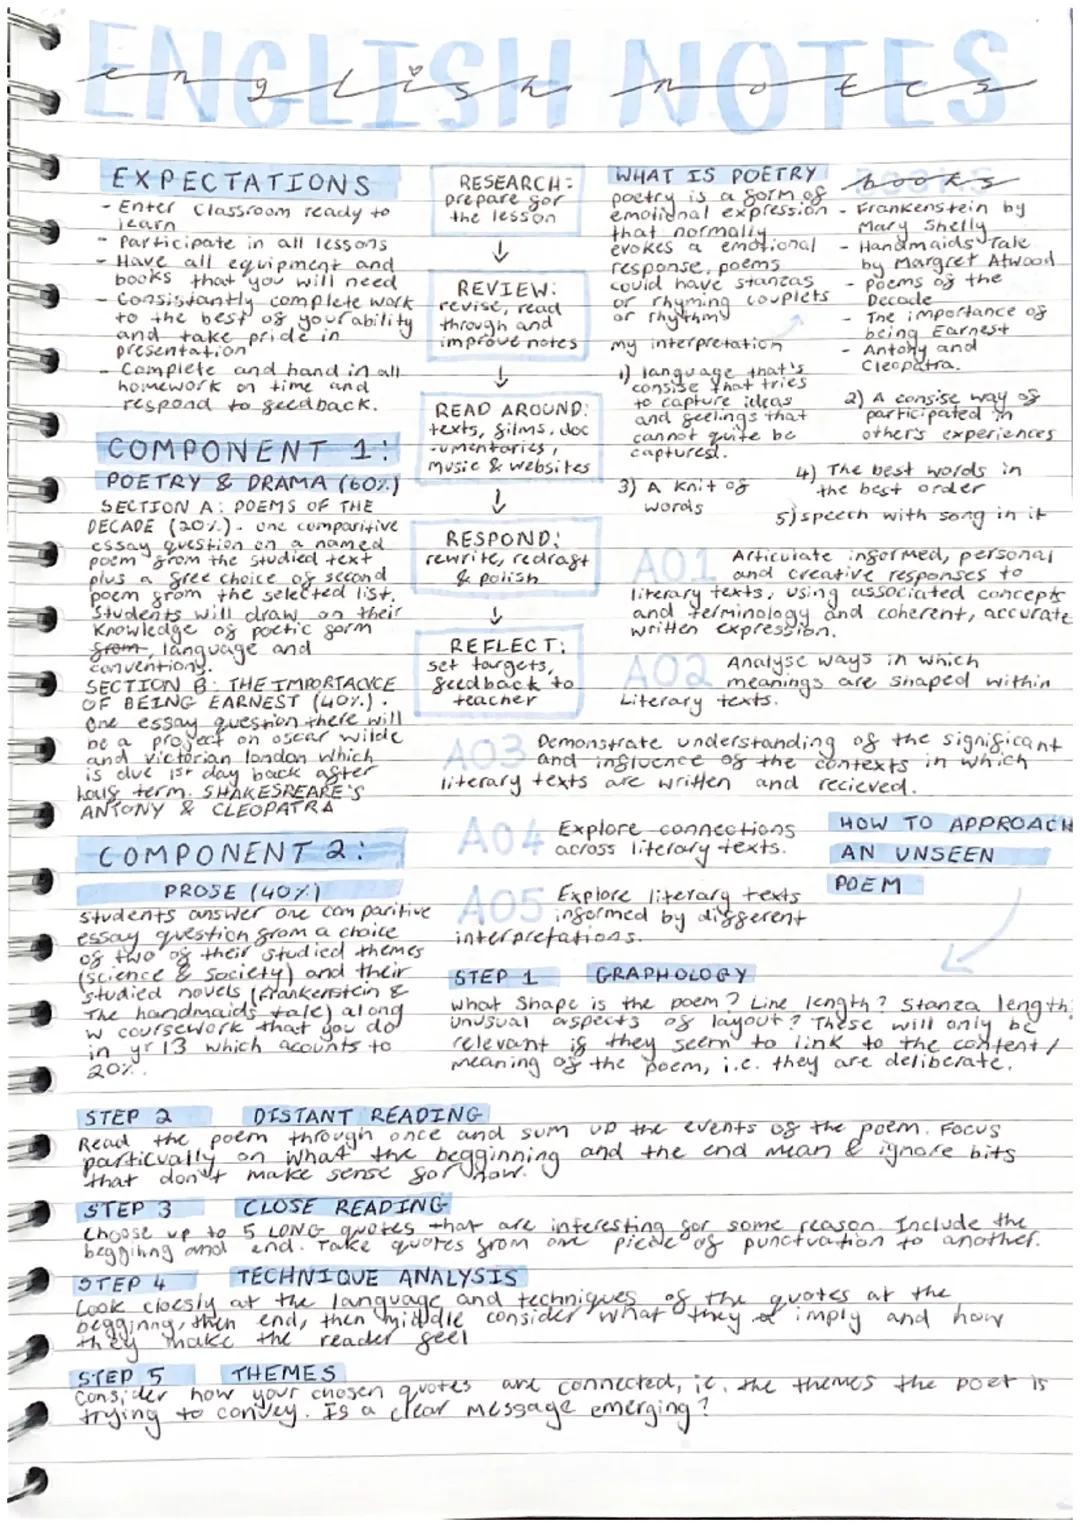 ENGLISH NOTES
english notes
EXPECTATIONS
- Enter classroom ready to
learn
- Participate in all lessons
- Have all equipment and
books that you will need
- Consistantly complete work
to the best of your ability
and take pride in
presentation
- Complete and hand in all
homework on time and
respond to feedback.
COMPONENT 1:
POETRY & DRAMA (60%)
SECTION A: POEMS OF THE
DECADE (20%). one comparitive
essay question on a named
poem from the studied text
plus a free choice of second
poem from the selected list.
Students will draw on their
knowledge of poetic form
from, language and
conventions.
SECTION B: THE IMPORTACVCE
OF BEING EARNEST (40%).
One essay question there will
be a project on oscar wilde
and victorian london which
is due 1st day back after
half term. SHAKESPEARE'S
ANTONY & CLEOPATRA
COMPONENT 2:
PROSE (40%)
students answer one comparitive
essay question from a choice
of two of their studied themes
(science & society) and their
studied novels (Frankenstein &
The handmaids tale) along
w coursework that you do
in yr 13 which acounts to
20%.
RESEARCH:
prepare for
the lesson
↓
REVIEW:
revise, read
through and
improve notes
↓
READ AROUND:
texts, films, doc
-umentaries,
music & websites
↓
RESPOND:
rewrite, redraft
& polish
↓
REFLECT:
set targets,
feedback to
teacher
WHAT IS POETRY
poetry is a form of
emotional expression
that normally
evokes a emotional
response, poems
could have stanzas
or rhyming couplets
or rhythmy
my interpretation
1) language that's
consise that tries
to capture ideas
and feelings that
cannot quite be
captured.
3) A knit of
words
books
- Frankenstein by
Mary Shelly
- Handmaids Tale
by Margret Atwood
- Poems of the
Decade
- The importance of
being Earnest
- Antony and
Cleopatra.
2) A consise way of
participated in
other's experiences
4) The best words in
the best order
5) speech with song in it
AO1 Articulate informed, personal
and creative responses to
literary texts, using associated concepts
and terminology and coherent, accurate
written expression.
AO2 Analyse ways in which
meanings are shaped within
Literary texts.
AO3 Demonstrate understanding of the significant
and influence of the contexts in which
literary texts are written and recieved.
AO4 Explore connections
across literary texts.
AO5 Explore literary texts
informed by different
interpretations.
HOW TO APPROACH
AN UNSEEN
POEM
STEP 1 GRAPHOLOGY
What Shape is the poem? Line length? Stanza length?
Unusual aspects of layout? These will only be
relevant if they seem to link to the content/
meaning of the poem, i.e. they are deliberate.
STEP 2 DISTANT READING
Read the poem through once and sum up the events of the poem. Focus
particually on what the begginning and the end mean & ignore bits
that don't make sense for now.
STEP 3 CLOSE READING
Choose up to 5 LONG quotes that are interesting for some reason. Include the
beggiing and end. Take quotes from one piece of punctuation to another.
STEP 4 TECHNIQUE ANALYSIS
Look cloesly at the language and techniques of the quotes at the
begginng, then end, then middle consider what they imply and how
they make the reader feel
STEP 5 THEMES
Consider how your chosen quotes are connected, ie. the themes the poet is
trying to convey. Is a clear message emerging?